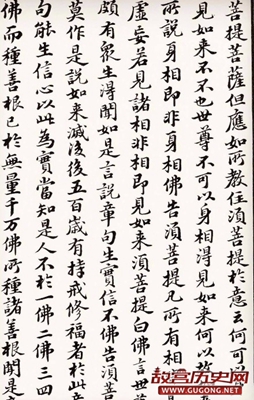 菩提菩薩但應如所教住湏菩提於意云何可以
見如来不不也世尊不可以身相得見如来何以故
所說身相即非身相佛告湏菩提凡所有相
虛妄若見諸相非相即見如来湏菩提白佛言世
頗有衆生得聞如是言說章句生實信不佛告湏菩
莫作是說如来滅後後五百歲有持戒修福者於此章
句能生信心以此為實當知是人不於一佛二佛三四
佛而種善根已於無量千万佛所種諸善根聞是
故宫历史网
WWW.GUGONG.NET